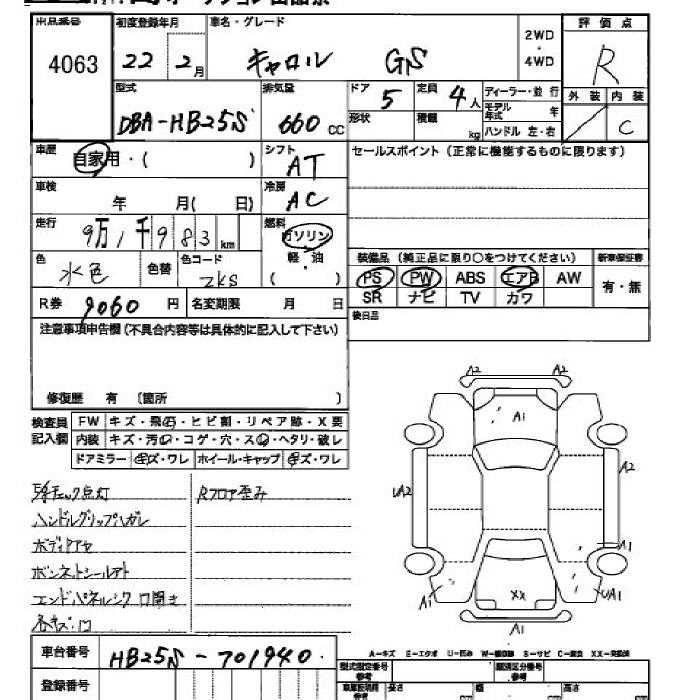 出品番号 初度登録年月 車名・グレード 評価点
4063 22 2月 キャロル GS 2WD・4WD R
外装 内装
C
型式 排気量 ドア 定員 ディーラー・並行
DBA-HB25S 660 CC 5 4人 モデル年式 年
形状 積載 kg ハンドル 左・右
車歴 自家用・( ) シフト AT セールスポイント(正常に機能するものに限ります)
車検 年 月( 日) 冷房 AC
走行 9万1千983km 燃料 ガソリン
軽・油
( )
色 水色 色替 色コード ZKS
装備品(純正品に限り○をつけてください) 新車保証書
PS PW ABS エアB AW 有・無
SR ナビ TV カワ
R券 9060円 名変期限 月 日
後日品
注意事項申告欄(不具合内容等は具体的に記入して下さい)
修復歴 有 〔箇所 〕
検査員記入欄 FW キズ・飛石・ヒビ割・リペア跡・X要
内装 キズ・汚・コゲ・穴・ス・ヘタリ・破レ
ドアミラー キズ・ワレ ホイール・キャップ キズ・ワレ
A2 A2
A1
UA2 A2
A1
A1 XX UA1
A1
チェック点灯 Rフロア歪み
ハンドルグリップハガレ
ボンネットシール
エンドパネルシワ 口開き
A-キズ E-エクボ U-凹み W-補修跡 S-サビ C-腐食 XX-交換済
車台番号 HB25S-701940
登録番号
型式指定番号 参考 類別区分番号 参考
長さ 幅 高さ